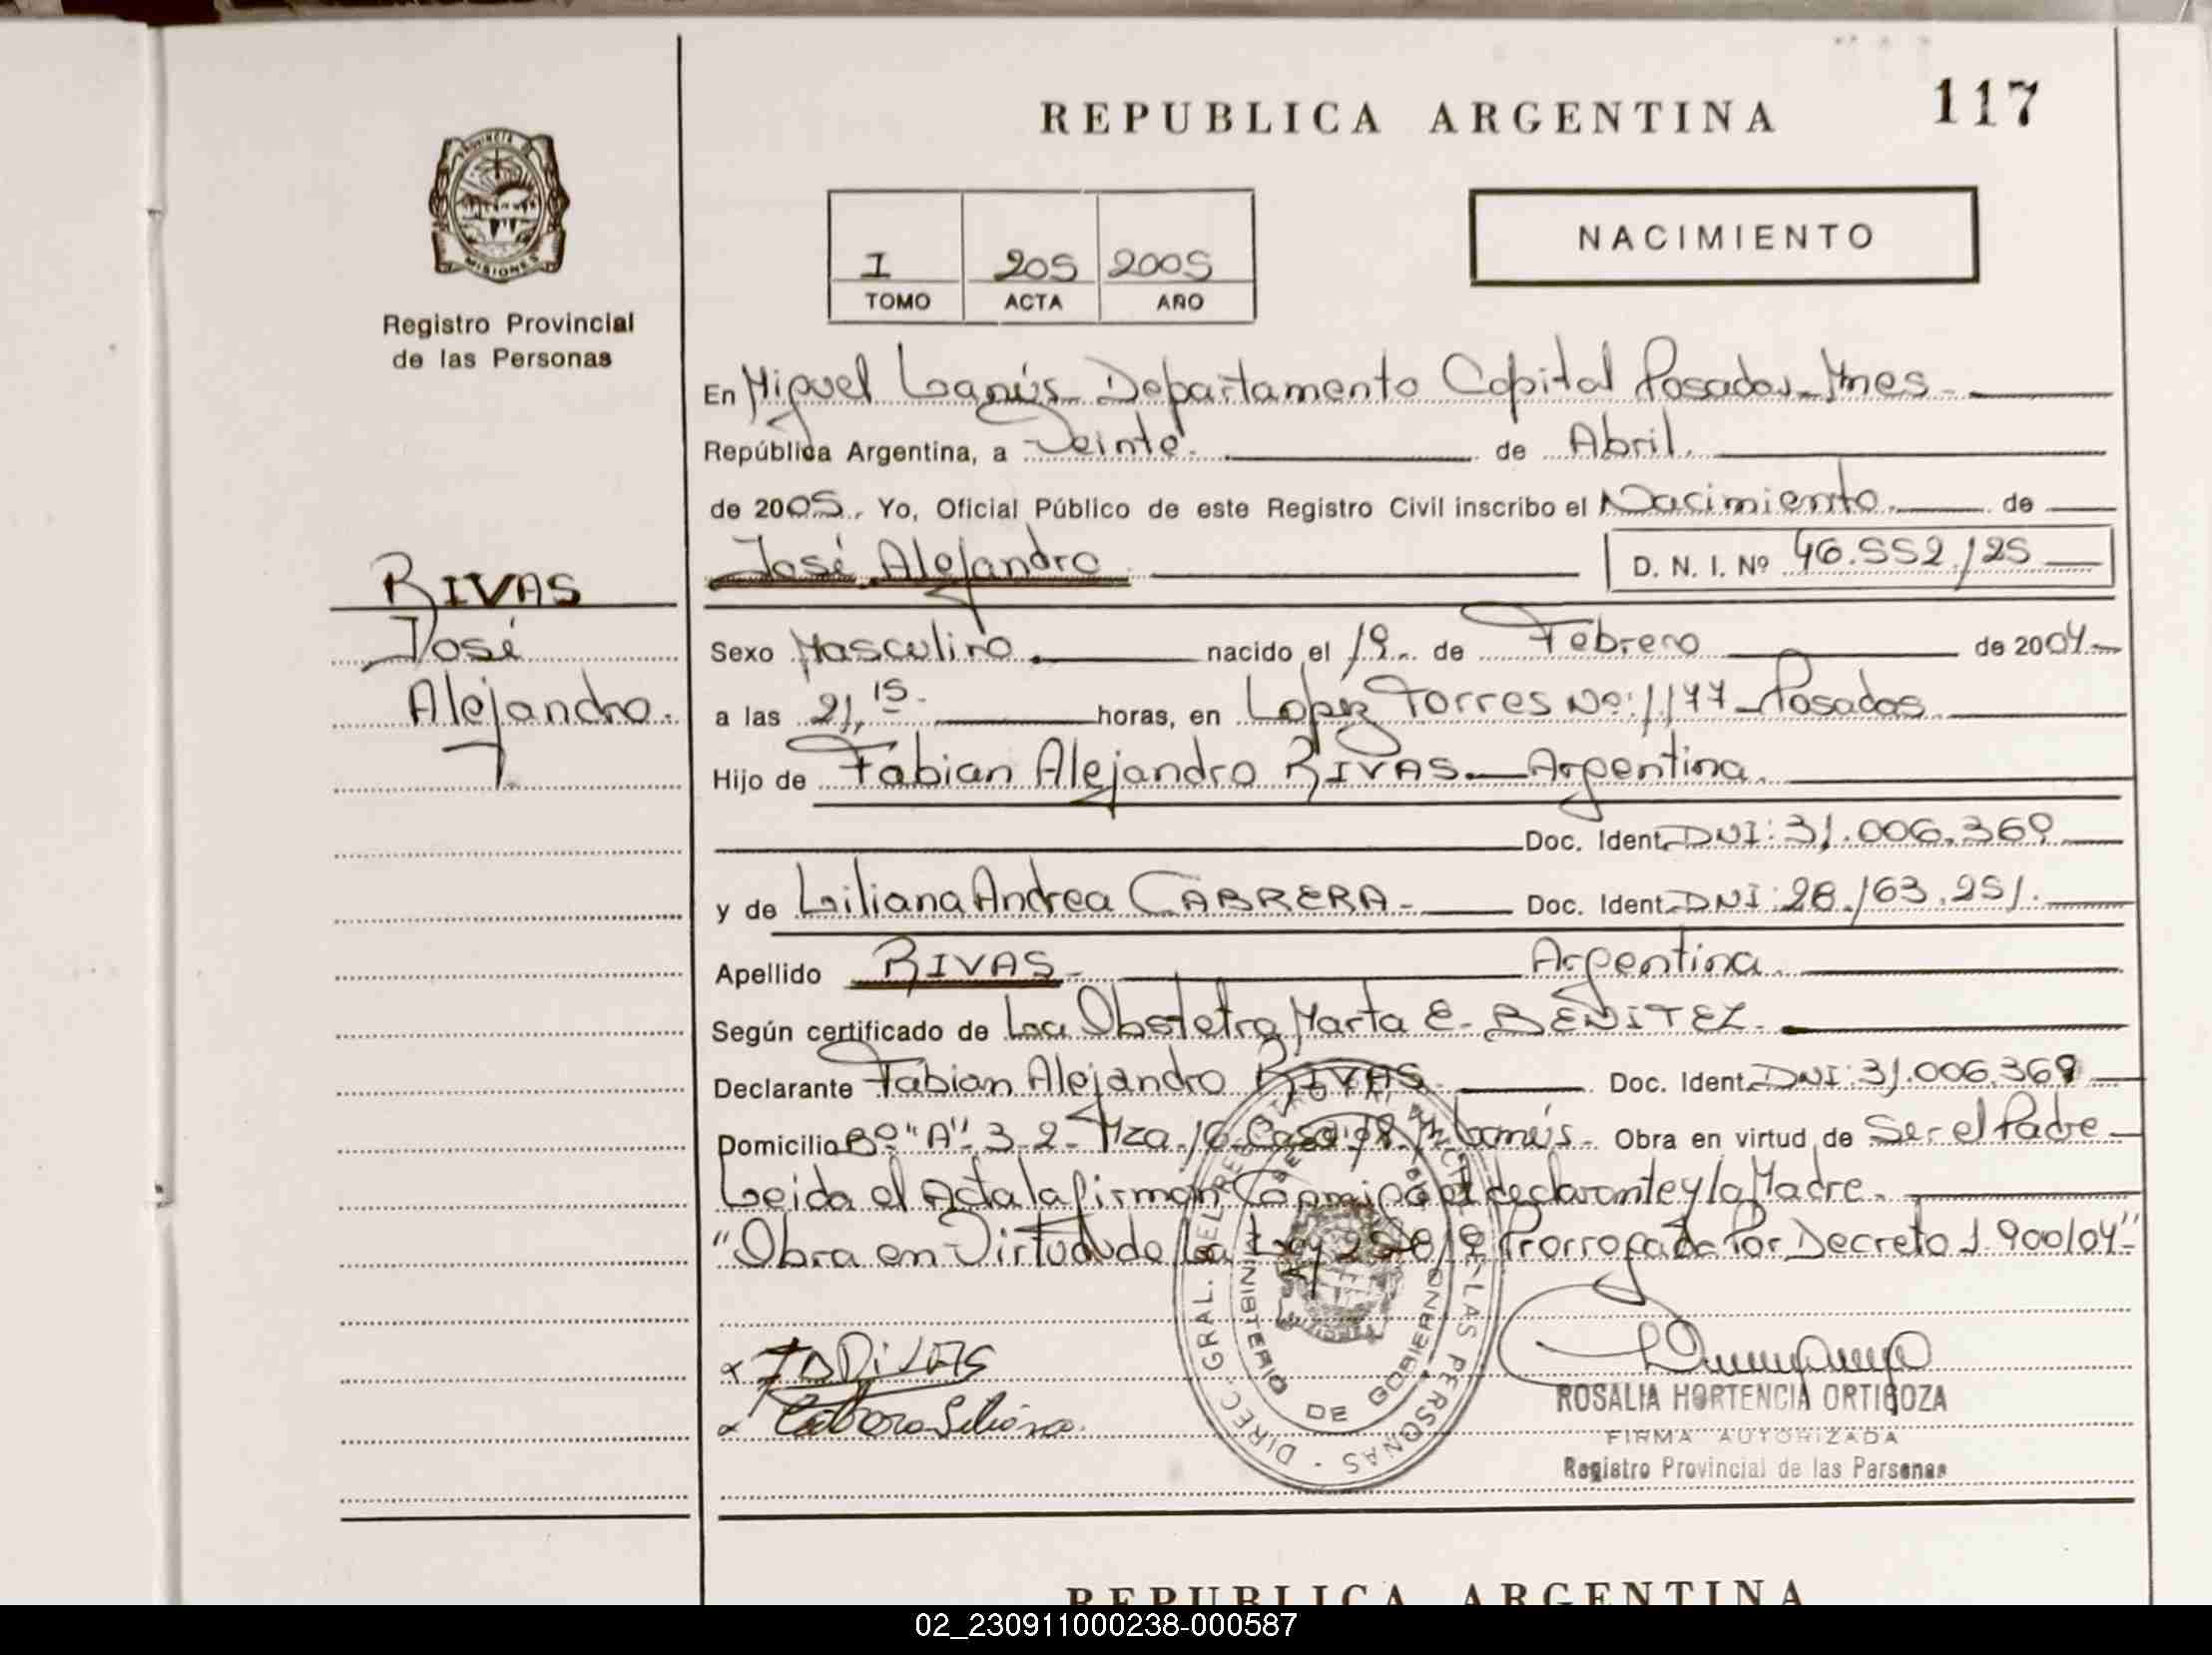 REPUBLICA ARGENTINA
117
PROVINCIA DE
MISIONES
Registro Provincial
de las Personas
NACIMIENTO
I 205 2005
TOMO ACTA AÑO
En Miguel Lanús Departamento Capital Posadas Mnes.
República Argentina, a Veinte. de Abril.
de 2005. Yo, Oficial Público de este Registro Civil inscribo el Nacimiento. de
José Alejandro D. N. I. Nº 46.552.125
RIVAS
José
Alejandro.
Sexo Masculino. nacido el 19. de Febrero de 2004.
a las 21,15. horas, en Lopez Torres Nº: 1177 Posadas
Hijo de Fabian Alejandro RIVAS. Argentina.
Doc. Ident. DNI: 31.006.369
y de Liliana Andrea CABRERA - Doc. Ident. DNI: 28.163.251.
Apellido RIVAS - Argentina.
Según certificado de La Obstetra Marta E. BENITEZ.
Declarante Fabian Alejandro RIVAS Doc. Ident. DNI: 31.006.369
Domicilio Bº "A" 3-2- Mza. Casa Lanús. Obra en virtud de Ser el Padre
Leida el Acta la firman Conmigo el declarante y la Madre.
"Obra en Virtud de la Ley Prorrogada Por Decreto 1.900/04"
Cabrera Liliana
DIREC. GRAL. DEL REGISTRO PROVINCIAL DE LAS PERSONAS
MINISTERIO DE GOBIERNO
ROSALIA HORTENCIA ORTIGOZA
FIRMA AUTORIZADA
Registro Provincial de las Personas
REPUBLICA ARGENTINA
02_230911000238-000587